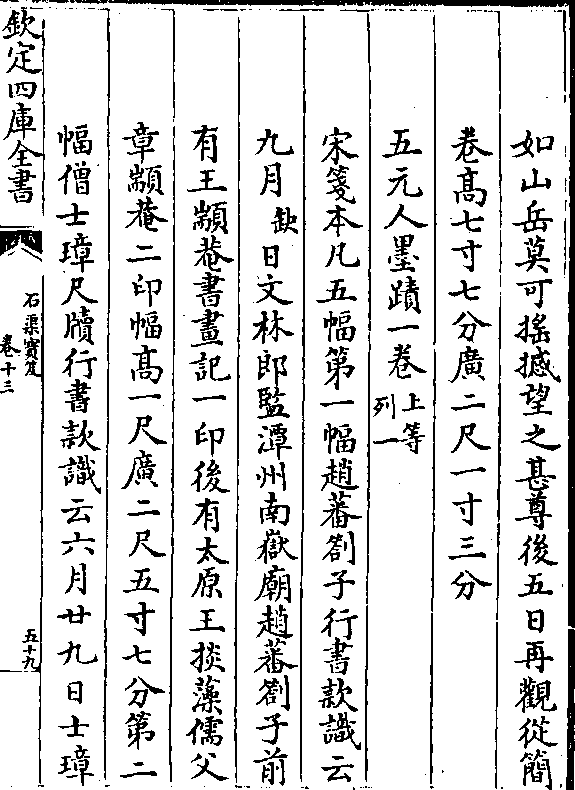 如山岳莫可揺撼望之甚尊後五日再觀從簡
卷髙七寸七分廣二尺一寸三分
五元人墨蹟一卷上等
列一
宋箋本凡五幅第一幅趙蕃劄子行書款識云
九月缺日文林郎監潭州南嶽廟趙蕃劄子前
有王顓菴書畫記一印後有太原王掞藻儒父
章顓菴二印幅髙一尺廣二尺五寸七分第二
幅僧士璋尺牘行書款識云六月廿九日士璋
欽定四庫全書
石渠寶笈
卷十三
五十九